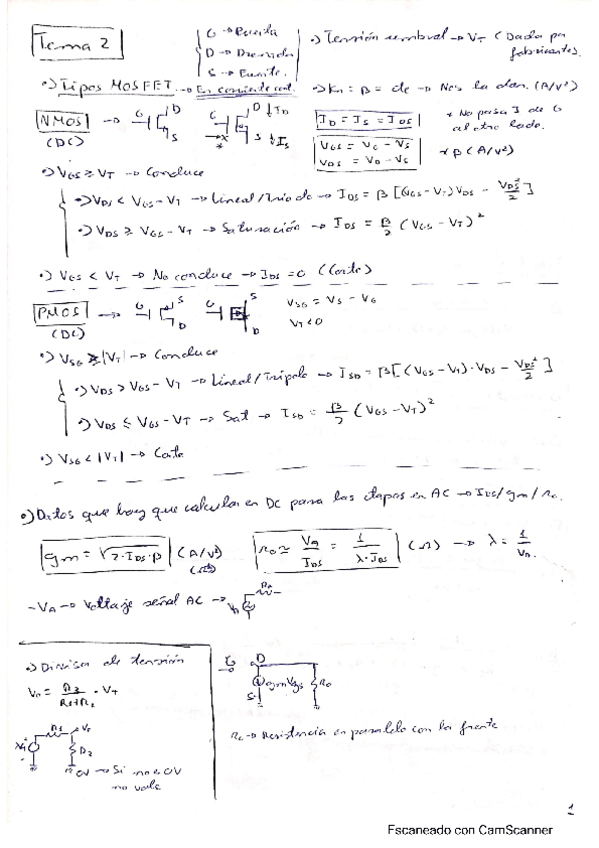 Tema 2
G → Puerta
D → Drenador
S → Fuente.
•) Tensión umbral → VT (Dada por fabricantes).
•) Tipos MOSFET. → En corriente cont.
•) Kn = β = de → Nos la dan. (A/V²)
NMOS → G D S G D ↓ID S ↓IS
(DC)
ID = IS = IDS
* No pasa I de G al otro lado.
VGS = VG - VS
VDS = VD - VS
* β (A/V²)
•) VGS ≥ VT → Conduce
•) VDS < VGS - VT → Lineal/Triodo → IDS = β [(VGS - VT) VDS - VDS²/2]
•) VDS ≥ VGS - VT → Saturación → IDS = β/2 (VGS - VT)²
•) VGS < VT → No conduce → IDS = 0 (Corte)
PMOS → G S D G S D
(DC)
VSG = VS - VG
VT < 0
•) VSG ≥ |VT| → Conduce
•) VDS > VGS - VT → Lineal/ → ISD = β[(VGS - VT) · VDS - VDS²/2]
•) VDS ≤ VGS - VT → Sat → ISD = β/2 (VGS - VT)²
•) VSG < |VT| → Corte
•) Datos que hay que calcular en DC para las etapas en AC → IDS/gm/ro.
gm = √2·IDS·β (A/V²)
ro ≃ VA/IDS = 1/λ·IDS (Ω) → λ = 1/VA.
- VA → Voltaje señal AC →
•) Divisor de tensión
R2/R1+R2
0V → Si no es 0V
no vale
G D
gmVgs ro
S
Resistencia en paralelo con la fuente
1
Escaneado con CamScanner